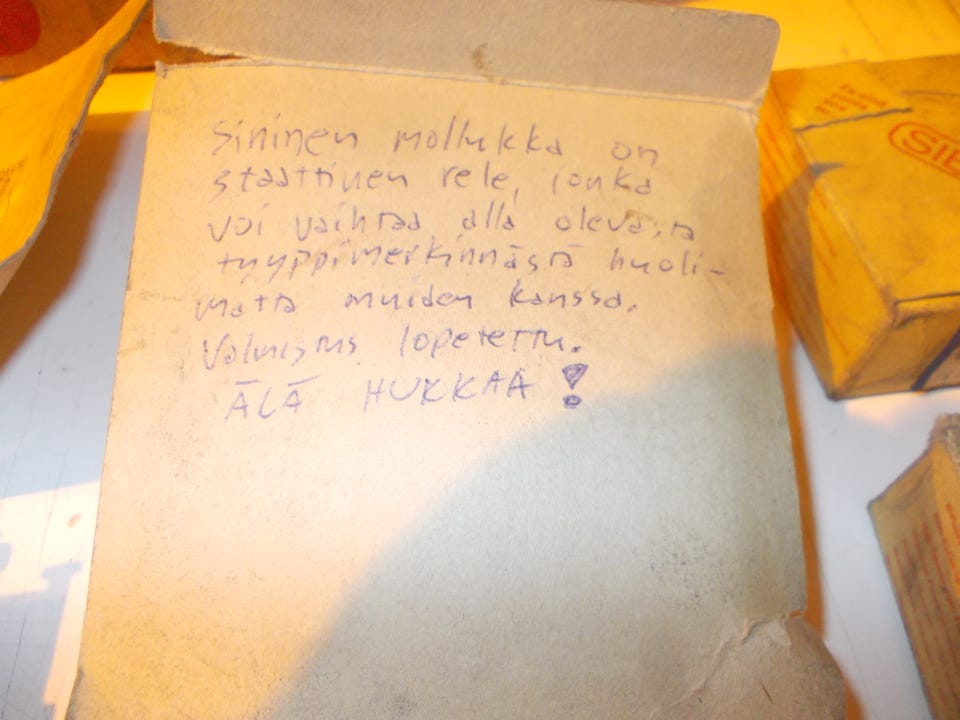 Sininen mollukka on
staattinen rele, jonka
voi vaihtaa alla olevasta
tyyppimerkinnästä huoli-
matta muiden kanssa.
Valmistus lopetettu.
ÄLÄ HUKKAA!
SIE